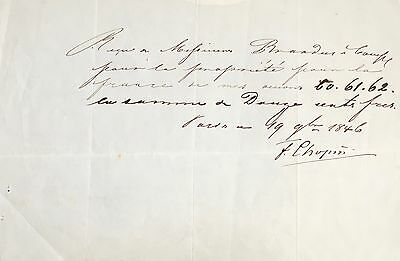 Reçu de Messieurs Brandus & Comp.
pour la propriété pour la
france de mes œuvres 60. 61. 62.
la somme de Douze cents frcs.
Paris ce 19 9bre 1846
F. Chopin